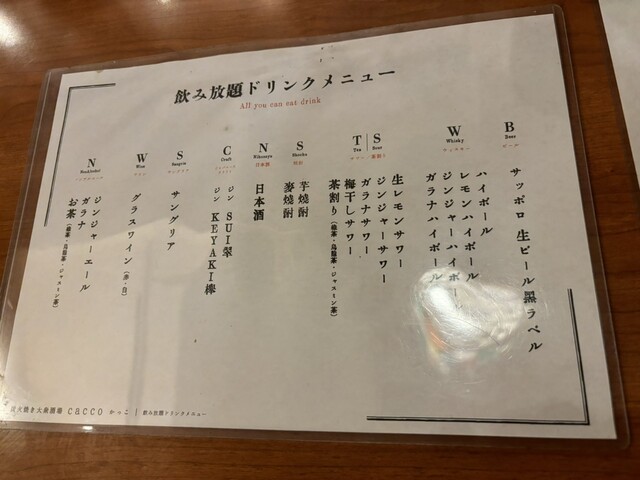 飲み放題ドリンクメニュー
All you can eat drink
B
Beer
ビール
サッポロ 生ビール黒ラベル
W
Whisky
ウィスキー
ハイボール
レモンハイボール
ジンジャーハイボール
ガラナハイボール
T|S
Tea
Sour
サワー・茶割り
生レモンサワー
ジンジャーサワー
ガラナサワー
梅干しサワー
茶割り(緑茶・烏龍茶・ジャスミン茶)
S
Shochu
焼酎
芋焼酎
麦焼酎
N
Nihonsyu
日本酒
日本酒
C
Craft
ジン SUI翠
ジン KEYAKI欅
S
Sangria
サングリア
サングリア
W
Wine
ワイン
グラスワイン(赤・白)
N
NonAlcohol
ノンアルコール
ジンジャーエール
ガラナ
お茶(緑茶・烏龍茶・ジャスミン茶)
炭火焼き大衆酒場 cacco かっこ | 飲み放題ドリンクメニュー